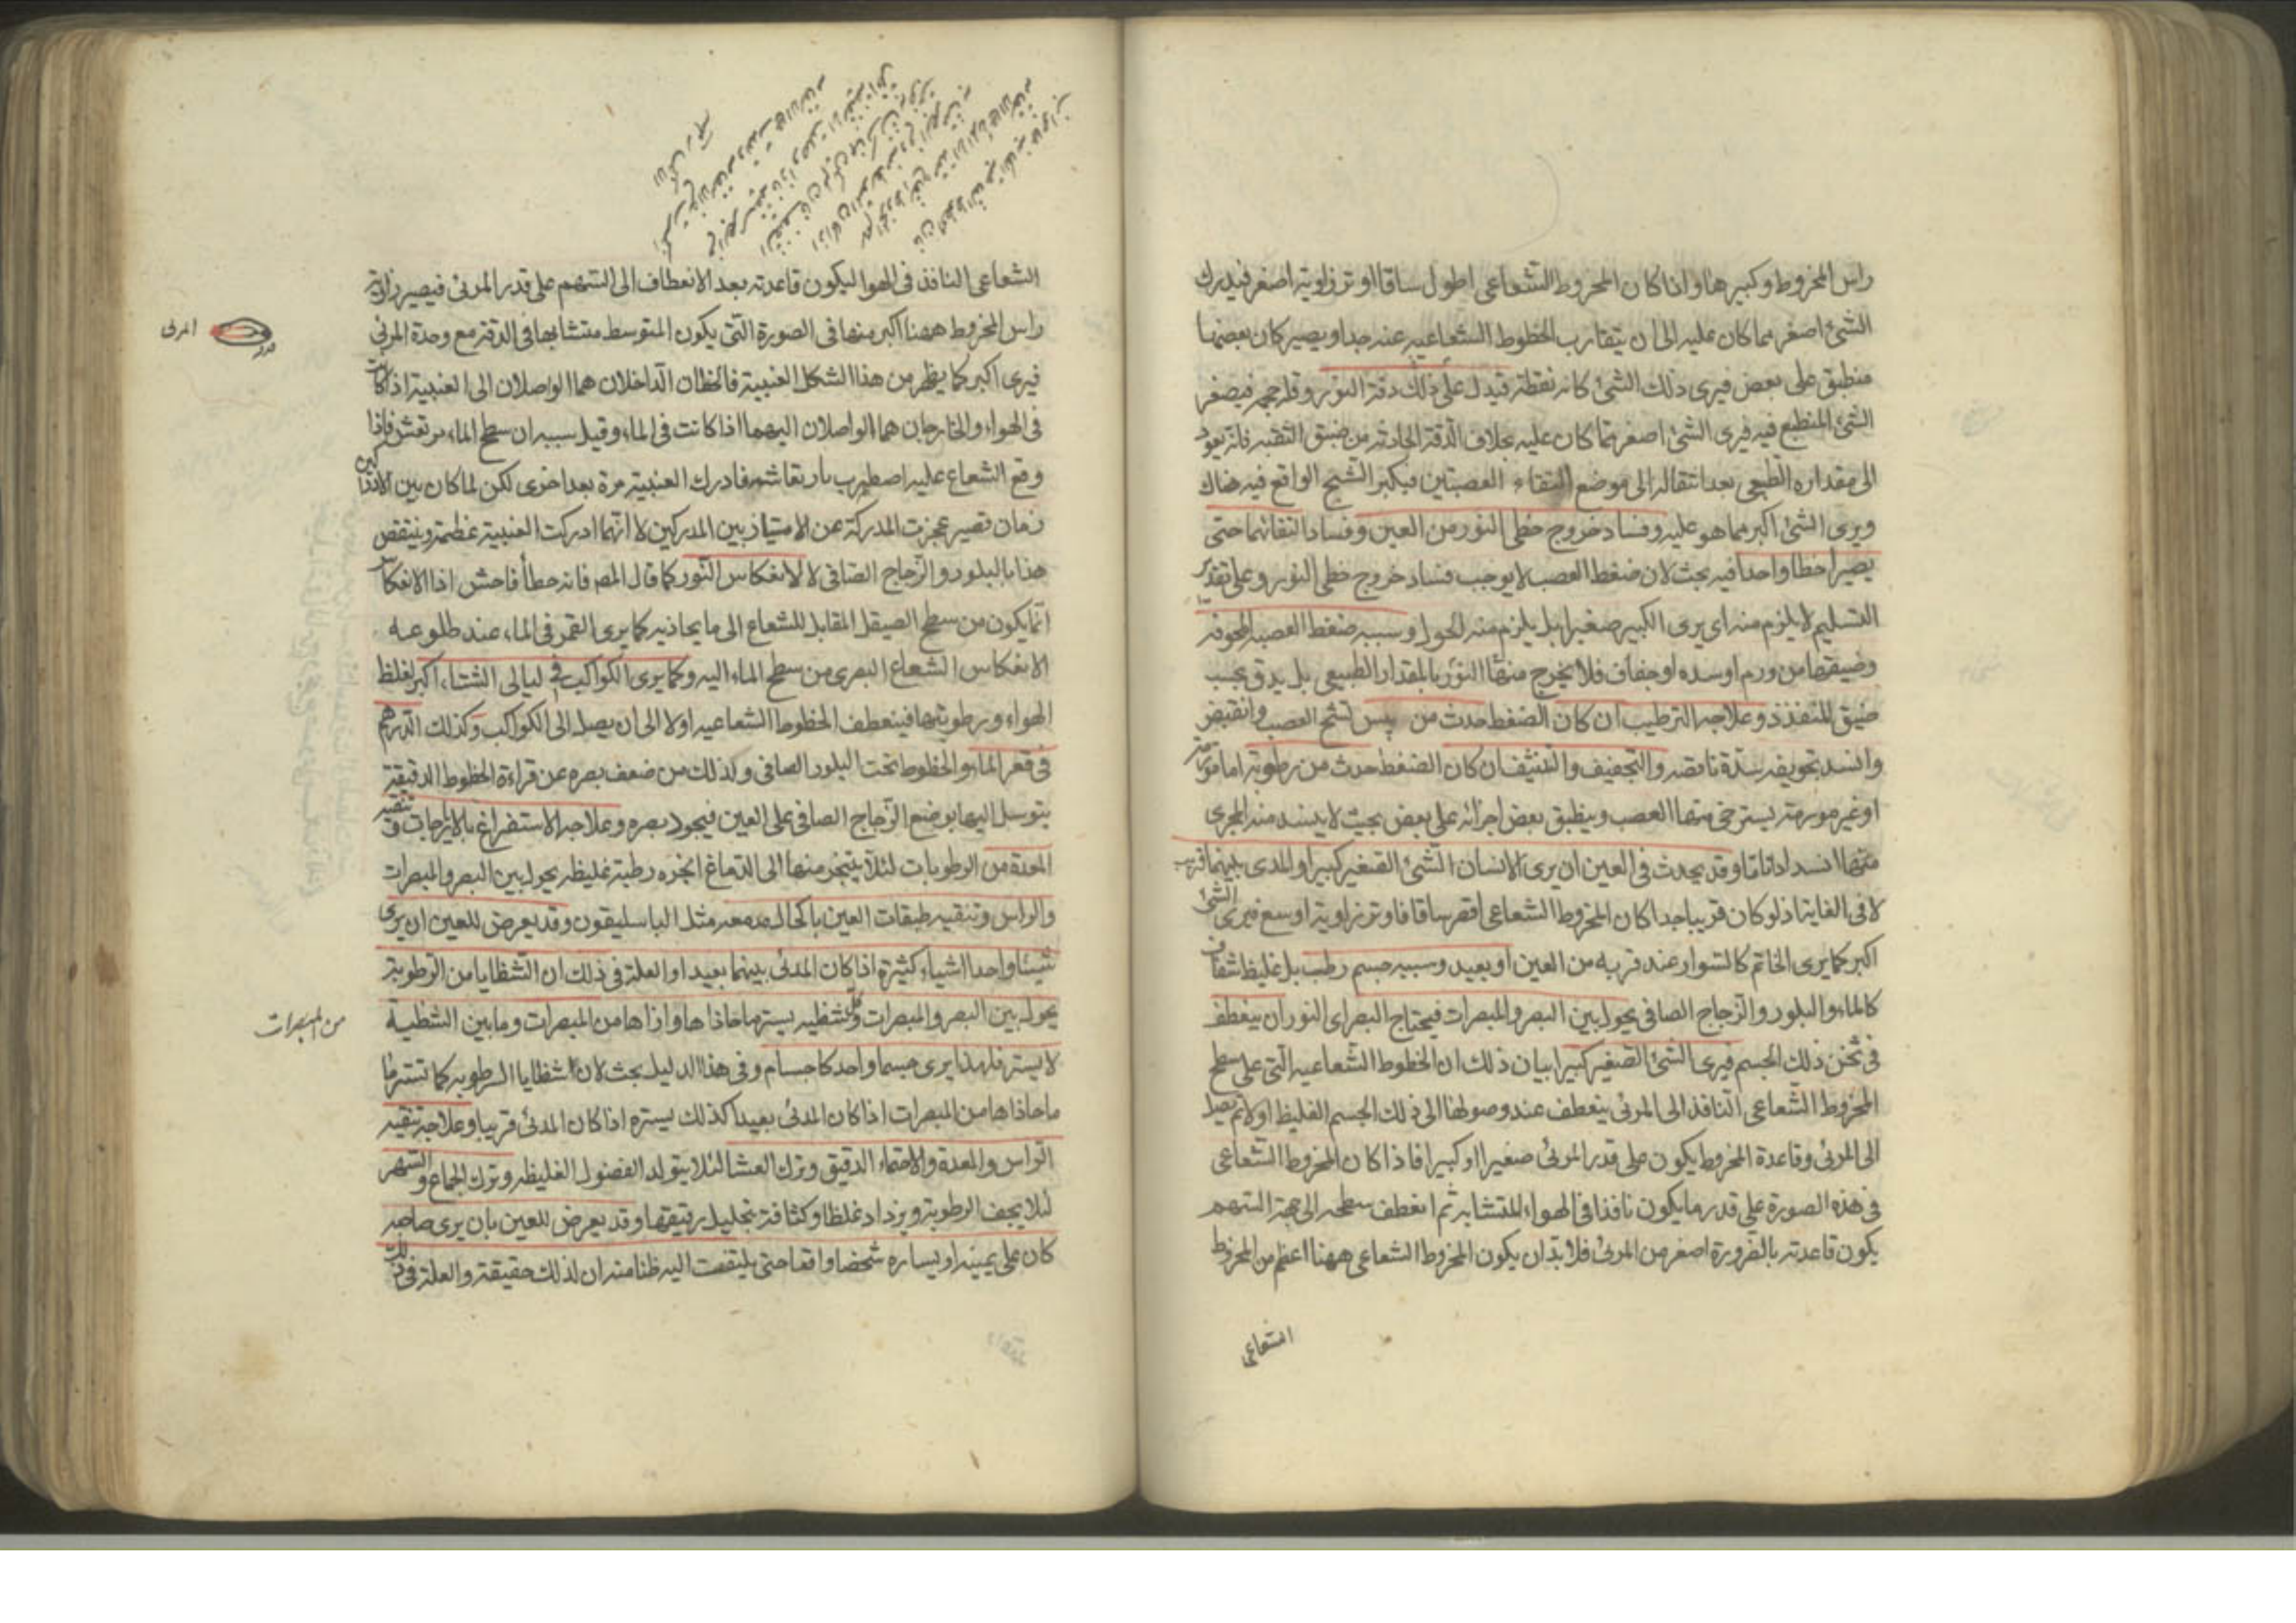 راس المخروط وكبيرها واذا كان المخروط الشعاعى اطول ساقا اوتر زاوية اصغر فيدرك
الشئ اصغر مما كان عليه الى ان يتقارب الخطوط الشعاعيه عند جدا ويصير كان بعضها
منطبق على بعض فيرى ذلك الشئ كانه نقطة فيدل على ذلك دقة النور وقلة حجمه فيصغر
الشئ المنطبع فيه فيرى الشئ اصغر مما كان عليه بخلاف الدقة الحادثه من ضيق الثقبه فانه يعود
الى مقداره الطبيعى بعد انتقاله الى موضع التقاء العصبتين فيكبر الشبح الواقع فيه هناك
ويرى الشئ اكبر مما هو عليه وفساد خروج خطى النور من العين وفساد التقائهما حتى
يصيرا خطا واحدا فيه بحث لان ضغط العصب لا يوجب فساد خروج خطى النور وعلى تقدير
التسليم لا يلزم منه اى يرى الكبير صغيرا بل يلزم منه الحول وسببه ضغط العصبه المجوفه
وضيقها من ورم او سده او جفاف فلا يخرج منها النور بالمقدار الطبيعى بل يدق بحسب
ضيق المنفذ وعلاجه الترطيب ان كان الضغط حدث من يبس لشنج العصب وانقبض
وانسد تجويفه سدة ناقصه والتجفيف والتنشيف ان كان الضغط حدث من رطوبة اما مورمة
او غير مورمة يسترخى منها العصب وينطبق بعض اجزائه على بعض بحيث لا ينسد منه المجرى
منها انسدادا تاما وقد يحدث فى العين ان يرى الانسان الشئ الصغير كبيرا والمدى بينهما قريب
لا فى الغاية اذ لو كان قريبا جدا كان المخروط الشعاعى اقصر ساقا فاوتر زاوية اوسع فيرى الشئ
اكبر كما يرى الخاتم كالسوار عند قربه من العين او بعيد وسببه جسم رطب بل غليظ شفاف
كالماء والبلور والزجاج الصافى يحول بين البصر والمبصرات فيحتاج البصر اى النور ان ينعطف
فى ثخن ذلك الجسم فيرى الشئ الصغير كبيرا بيان ذلك ان الخطوط الشعاعيه التى على سطح
المخروط الشعاعى النافذ الى المرئى ينعطف عند وصولها الى ذلك الجسم الغليظ اولا ثم يصل
الى المرئى وقاعدة المخروط يكون على قدر المرئى صغيرا او كبيرا فاذا كان المخروط الشعاعى
فى هذه الصورة على قدر ما يكون نافذا فى الهواء المتشابه ثم انعطف سطحه الى جهة السهم
يكون قاعدته بالضرورة اصغر من المرئى فلا بد ان يكون المخروط الشعاعى ههنا اعظم من المخروط
الشعاعى
الشعاعى النافذ فى الهوا ليكون قاعدته بعد الانعطاف الى السهم على قدر المرئى فيصير زاوية
راس المخروط ههنا اكبر منها فى الصورة التى يكون المتوسط متشابها فى الدقة مع وحدة المرئى
المرئى
فيرى اكبر كما يظهر من هذا الشكل العنبية فالخطان الداخلان هما الواصلان الى العنبية اذا كانت
فى الهواء والخارجان هما الواصلان اليهما اذا كانت فى الماء وقيل سببه ان سطح الماء مرتعش فاذا
وقع الشعاع عليه اضطرب بارتعاشه فادرك العنبية مرة بعد اخرى لكن لما كان بين الادراكين
زمان قصير عجزت المدركة عن الامتياز بين المدركين لا انها ادركت العنبية عظمة وينتقض
هذا بالبلور والزجاج الصافى لا لانعكاس النور كما قال المصـ فانه خطأ فاحش اذ الانعكاس
انما يكون من سطح الصيقل المقابل للشعاع الى ما يحاذيه كما يرى القمر فى الماء عند طلوعه
الانعكاس الشعاع البصرى من سطح الماء اليه وكما يرى الكواكب فى ليالى الشتاء اكبر لغلظ
الهواء ورطوبتها فينعطف الخطوط الشعاعيه اولا الى ان يصل الى الكواكب وكذلك الدرهم
فى قعر الماء والخطوط تحت البلور الصافى ولذلك من ضعف بصره عن قراءة الخطوط الدقيقة
يتوسل اليها بوضع الزجاج الصافى على العين فيجود بصره وعلاجه الاستفراغ بالايارجات وتنقيه
المعدة من الرطوبات لئلا يتبخر منها الى الدماغ ابخره رطبة غليظه يحول بين البصر والمبصرات
والراس وتنقيه طبقات العين باكحال مدمعه مثل الباسليقون وقد يعرض للعين ان يرى
شيئا واحدا اشياء كثيرة اذا كان المدئ بينهما بعيدا والعلة فى ذلك ان الشظايا من الرطوبة
يحول بين البصر والمبصرات وكل شظيه يستر ما حاذاها وازاها من المبصرات وما بين الشظية
من المبصرات
لا يستر فلهذا يرى جسما واحد كاجسام وفى هذا الدليل بحث لان شظايا الرطوبه كما تستر ما
ما حاذاها من المبصرات اذا كان المدئ بعيدا كذلك يستره اذا كان المدئ قريبا وعلاجه تنقيه
الراس والمعدة والاحتماء الدقيق وترك العشا لئلا يتولد الفضول الغليظه وترك الجماع والسهر
لئلا يجف الرطوبة ويزداد غلظا وكثافة بتحليل رقيقها وقد يعرض للعين بان يرى صاحبه
كان على يمينه او يساره شخصا واقفا حتى يلتفت اليه ظنا منه ان لذلك حقيقة والعلة فى ذلك